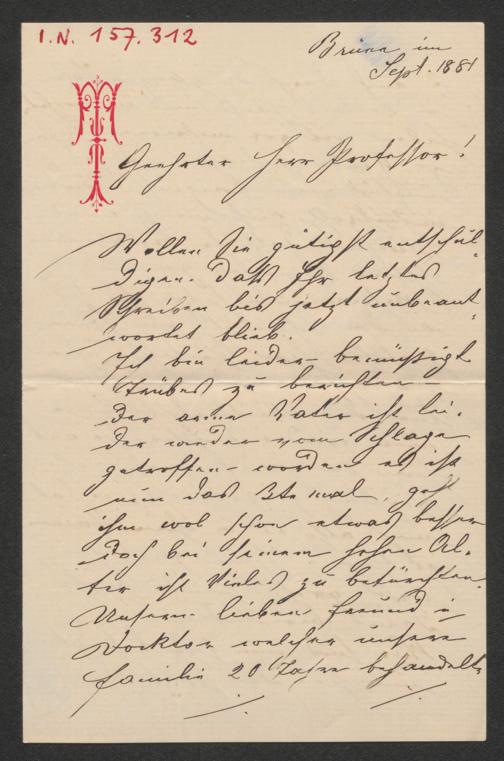 I.N. 157.312
Brünn im
Sept. 1881
Geehrter Herr Professor!
Wollen Sie gütigst entschul-
digen. daß Ihr letztes
Schreiben bis jetzt unbeant-
wortet blieb.
Ich bin leider bemüssigt
Trübes zu berichten –
Der arme Vater ist lei-
der wieder vom Schlage
getroffen – worden es ist
nun das 3te mal, geht
ihm wol schon etwas besser
doch bei seinem hohen Al-
ter ist Vieles zu befürchten.
Unsern lieben Freund u
Docktor welcher unsere
Familie 20 Jahre behandelte